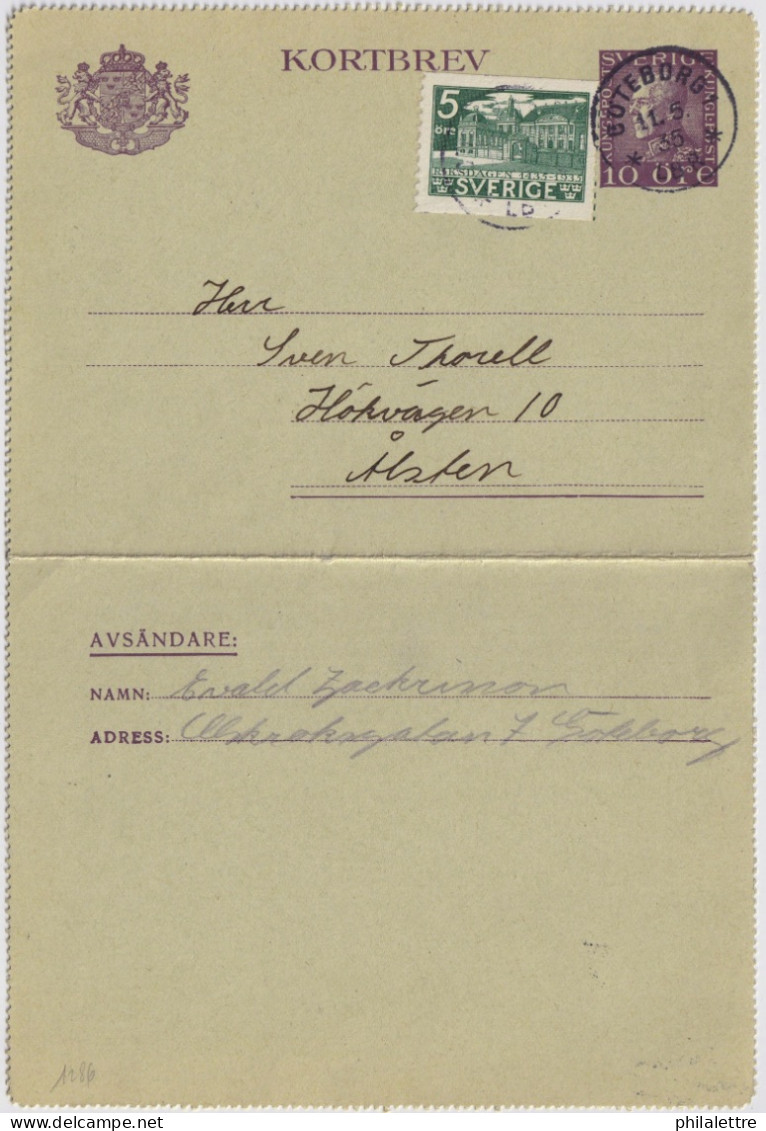 KORTBREV
SVERIGE
KUNGSPOST
KUNGL POST
10 ÖRE
GÖTEBORG 1
11.5.
35
5
öre
RIKSDAGEN 1435-1935
SVERIGE
LB
Herr
Sven Thorell
Hökvägen 10
Ålsten
AVSÄNDARE:
NAMN: Evald Zackrisson
ADRESS: 7 Göteborg
1286
delcampe.net
philalettre